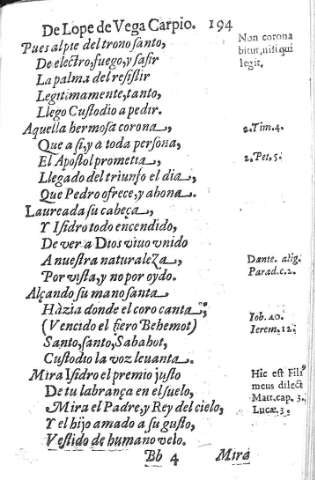 De Lope de Vega Carpio. 194
Pues al pie del trono santo,
De electro, fuego, y safir
La palma del resistir
Legitimamente, tanto,
Llego Custodio a pedir.
Non corona
bitur, nisi qui
legit.
Aquella hermosa corona,
Que a si, y a toda persona,
El Apostol prometia,
Llegado del triunfo el dia,
Que Pedro ofrece, y abona.
2. Tim. 4.
2. Pet. 5.
Laureada su cabeça,
Y Isidro todo encendido,
De ver a Dios viuo vnido
A nuestra naturaleza,
Por vista, y no por oydo.
Dante. alig.
Parad. c. 2.
Alçando su mano santa
Hàzia donde el coro canta,
(Vencido el fiero Behemot)
Santo, santo, Sabahot,
Custodio la voz leuanta.
Iob. 40.
Ierem. 12.
Mira Isidro el premio justo
De tu labrança en el suelo,
Mira el Padre, y Rey del cielo,
Y el hijo amado a su gusto,
Vestido de humano velo.
Hic est Fili
meus dilect
Matt. cap. 3.
Lucæ. 3.
Bb 4 Mira